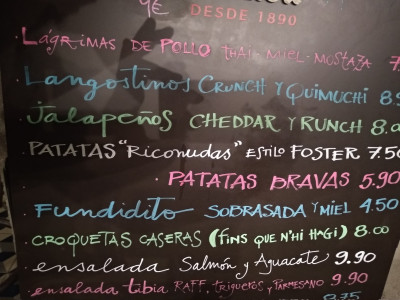 DESDE 1890
Lágrimas DE POLLO THAI MIEL-MOSTAZA 7
Langostinos CRUNCH Y QUIMUCHI 8.9
Jalapeños CHEDDAR Y RUNCH 8.00
PATATAS "Riconudas" ESTILO FOSTER 7.50
PATATAS BRAVAS 5.90
Fundidito SOBRASADA Y MIEL 4.50
CROQUETAS CASERAS (FINS QUE N'HI HAGI) 8.00
ensalada Salmón y Aguacate 9.90
ensalada tibia RAFF, trigueros y PARMESANO 9.90